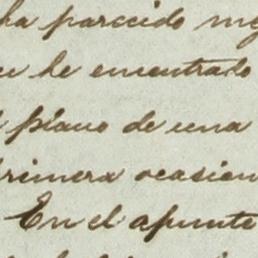 ha parecido
he encontrado
piano de una
primera ocasion
En el apunte